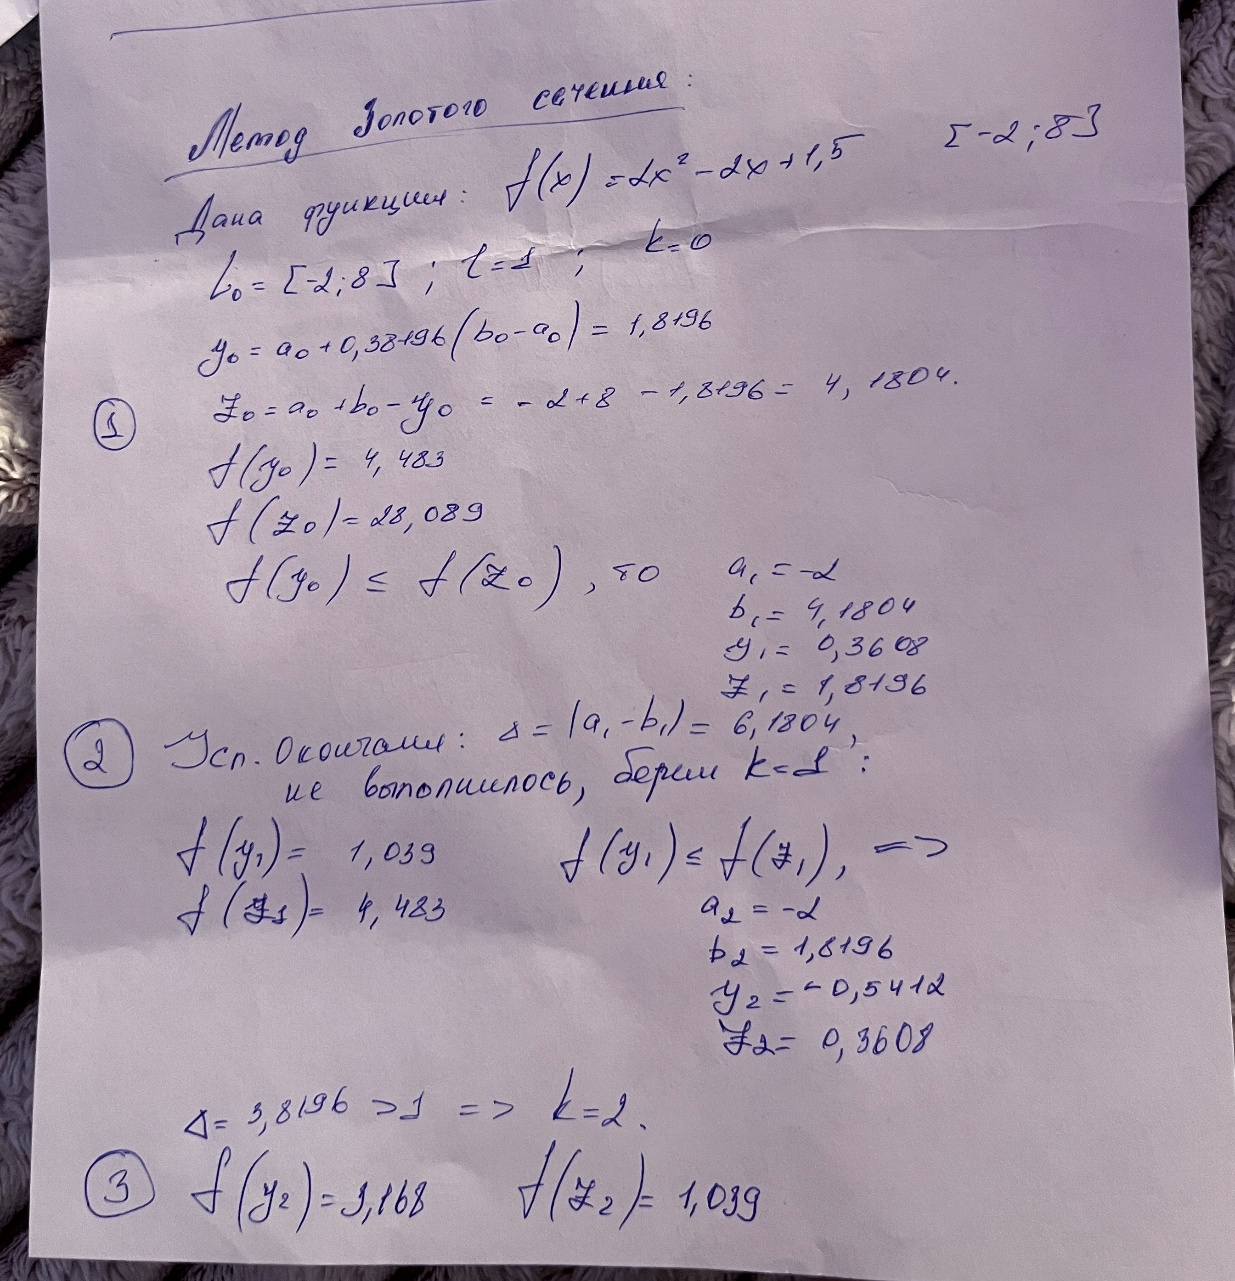 Метод Золотого сечения:
Дана функция: f(x) = 2x² - 2x + 1,5 [-2; 8]
L₀ = [-2; 8] ; l = 1 ; k = 0
y₀ = a₀ + 0,38196 (b₀ - a₀) = 1,8196
① z₀ = a₀ + b₀ - y₀ = - 2 + 8 - 1,8196 = 4,1804.
f(y₀) = 4,483
f(z₀) = 28,089
f(y₀) ≤ f(z₀), то a₁ = -2
b₁ = 4,1804
y₁ = 0,3608
z₁ = 1,8196
② Усл. Окончания: Δ = |a₁ - b₁| = 6,1804,
не выполнилось, берем k = 1 :
f(y₁) = 1,039 f(y₁) ≤ f(z₁), =>
f(z₁) = 4,483 a₂ = -2
b₂ = 1,8196
y₂ = -0,5412
z₂ = 0,3608
Δ = 3,8196 > 1 => k = 2.
③ f(y₂) = 3,168 f(z₂) = 1,039